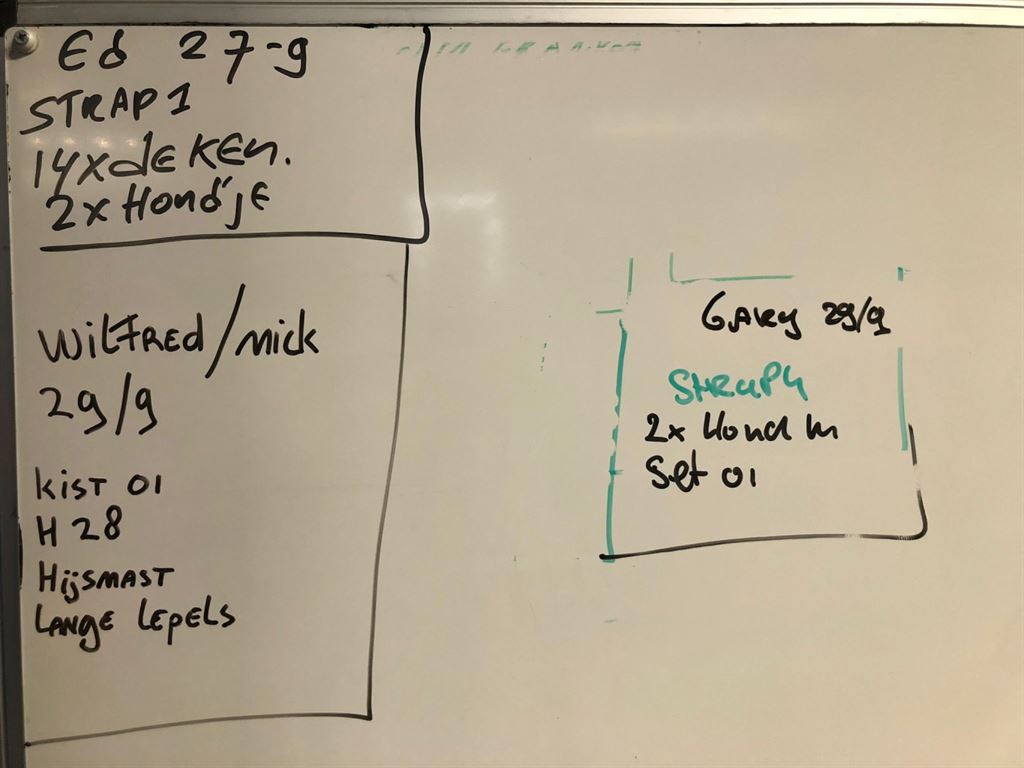 Ed 27-9
STRAP 1
14x deken.
2x Hond'je
Wilfred/mick
29/9
Kist 01
H 28
Hijsmast
Lange Lepels
Gary 29/9
Strap 4
2x Hond
Set 01